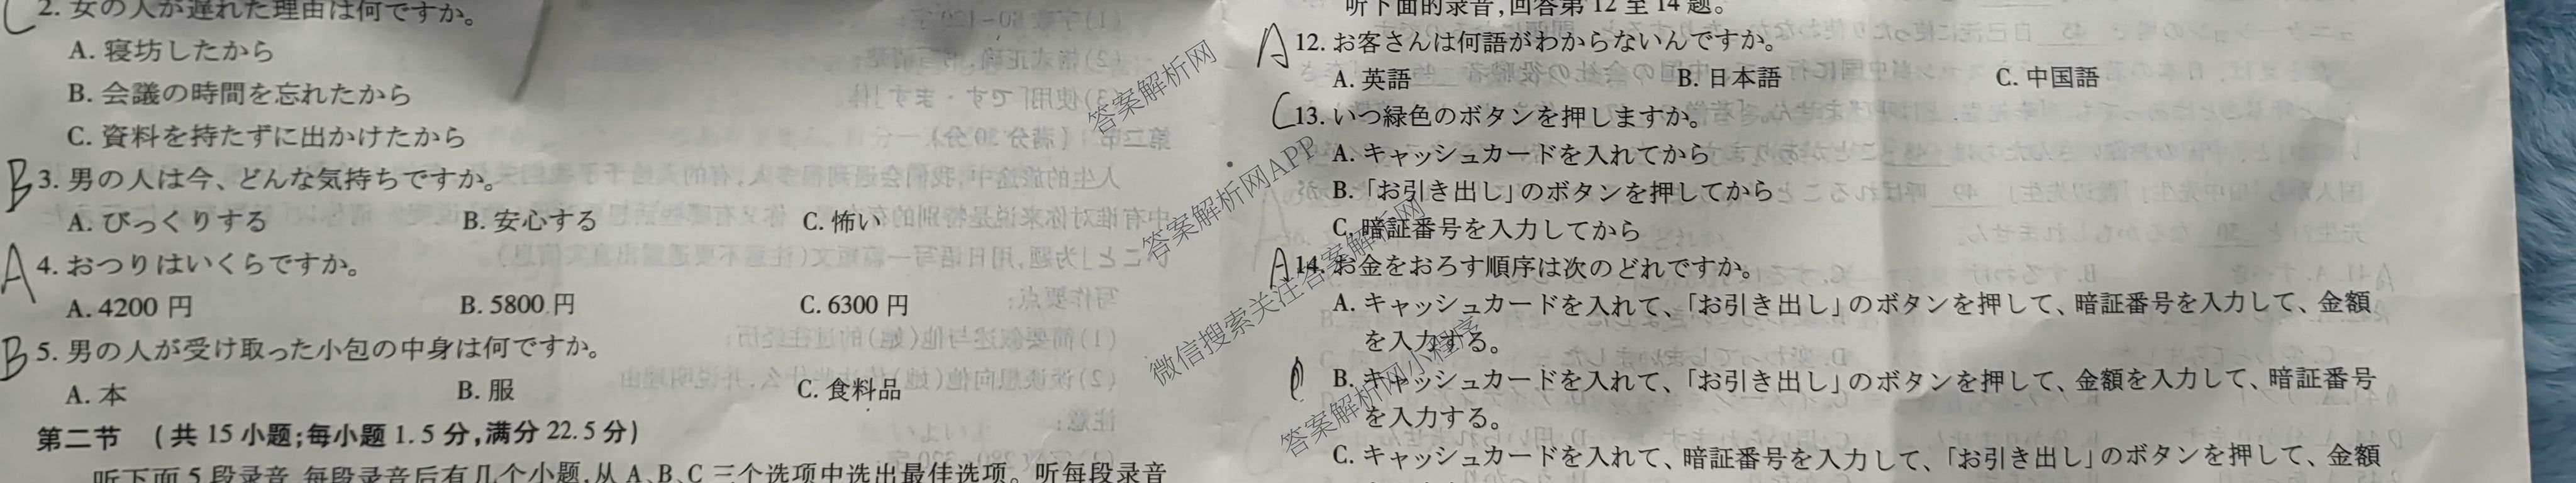 C 2. 女の人が遅れた理由は何ですか。
A. 寝坊したから
B. 会議の時間を忘れたから
C. 資料を持たずに出かけたから
B 3. 男の人は今、どんな気持ちですか。
A. びっくりする B. 安心する C. 怖い
A 4. おつりはいくらですか。
A. 4200 円 B. 5800 円 C. 6300 円
B 5. 男の人が受け取った小包の中身は何ですか。
A. 本 B. 服 C. 食料品
第二节 (共 15 小题;每小题 1. 5 分,满分 22. 5 分)
听下面 5 段录音,每段录音后有几个小题,从 A、B、C 三个选项中选出最佳选项。听每段录音
听下面的录音,回答第 12 至 14 题。
A 12. お客さんは何語がわからないんですか。
A. 英語 B. 日本語 C. 中国語
C 13. いつ緑色のボタンを押しますか。
A. キャッシュカードを入れてから
B. 「お引き出し」のボタンを押してから
C. 暗証番号を入力してから
A 14. お金をおろす順序は次のどれですか。
A. キャッシュカードを入れて、「お引き出し」のボタンを押して、暗証番号を入力して、金額
を入力する。
B. キャッシュカードを入れて、「お引き出し」のボタンを押して、金額を入力して、暗証番号
を入力する。
C. キャッシュカードを入れて、暗証番号を入力して、「お引き出し」のボタンを押して、金額
答案解析网
答案解析网APP
微信搜索关注答案解析网
答案解析网小程序